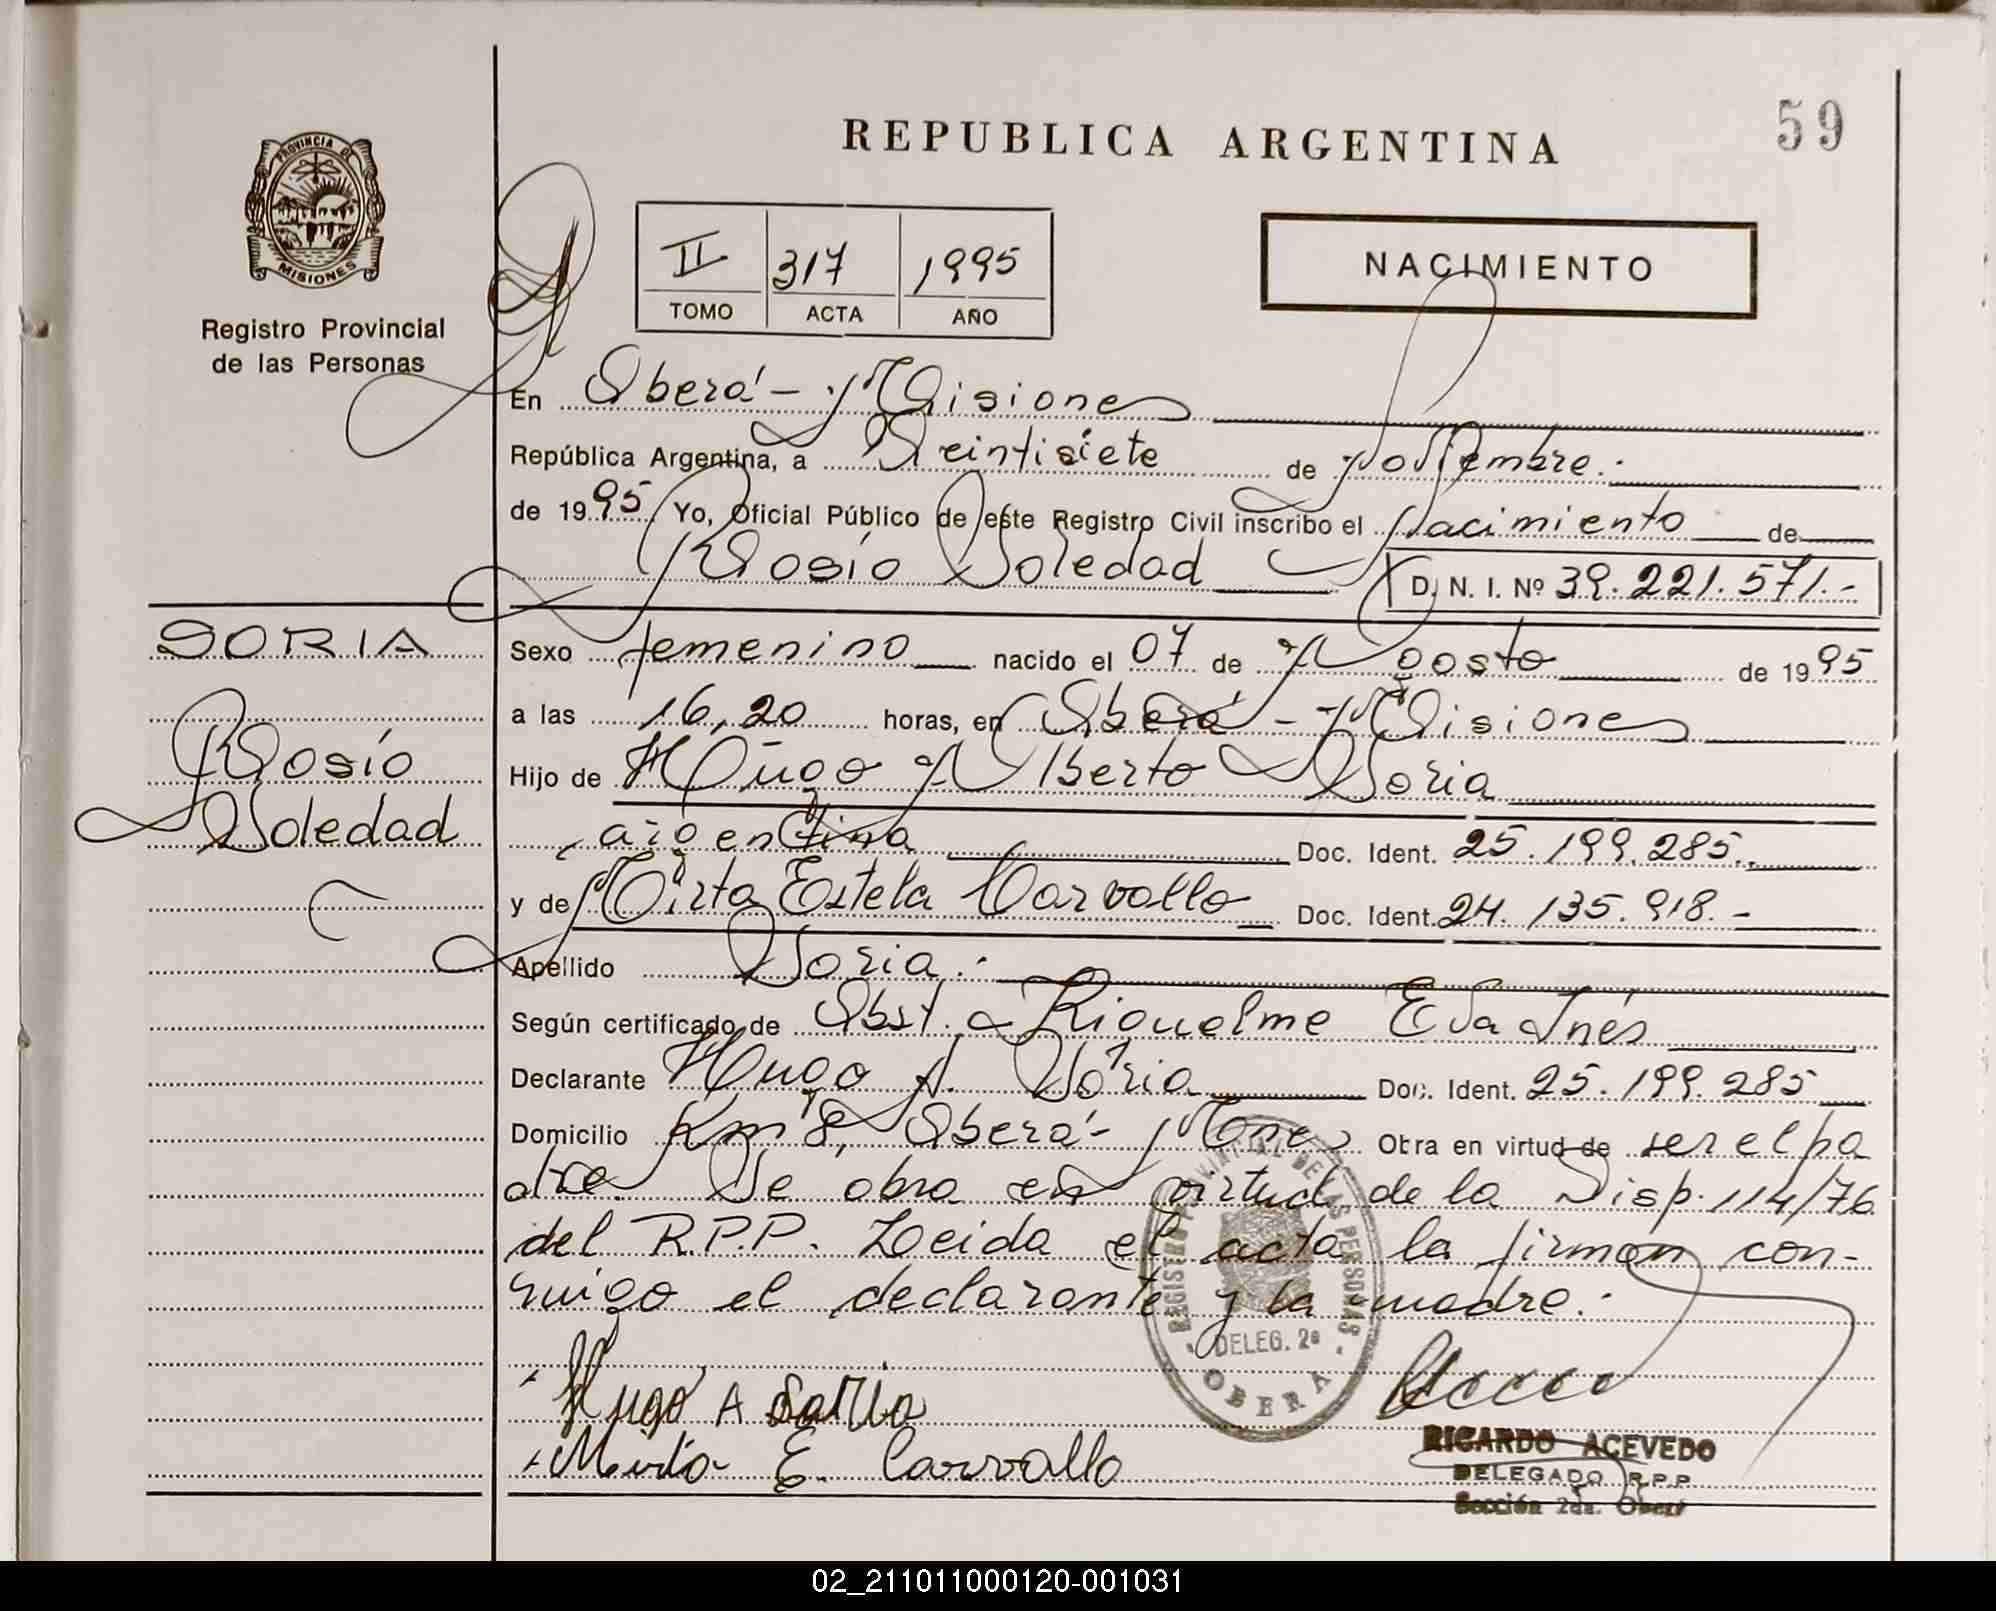 59
REPUBLICA ARGENTINA
PROVINCIA DE
MISIONES
Registro Provincial
de las Personas
II 317 1995
TOMO ACTA AÑO
NACIMIENTO
En Oberá - Misiones
República Argentina, a Veintisiete de Noviembre.-
de 1995 Yo, Oficial Público de este Registro Civil inscribo el Nacimiento de
Rosío Soledad D. N. I. Nº 39.221.571.-
SORIA
Rosío
Soledad
Sexo femenino nacido el 07 de Agosto de 1995
a las 16,20 horas, en Oberá - Misiones
Hijo de Hugo Alberto Soria
argentina Doc. Ident. 25.199.285.
y de Mirta Estela Carvallo Doc. Ident. 24.135.918.-
Apellido Soria.-
Según certificado de Obst. Riquelme Eva Inés
Declarante Hugo A. Soria Doc. Ident. 25.199.285
Domicilio Km 8, Oberá - Mnes Obra en virtud de ser el pa
dre. Se obra en virtud de la Disp. 114/76
del R.P.P. Leida el acta la firman con-
migo el declarante y la madre.-
REGISTRO PROVINCIAL DE LAS PERSONAS
DELEG. 2ª
OBERA
Hugo A Soria
Mirta E. Carvallo
RICARDO ACEVEDO
DELEGADO R.P.P
Sección 2da. Oberá
02_211011000120-001031